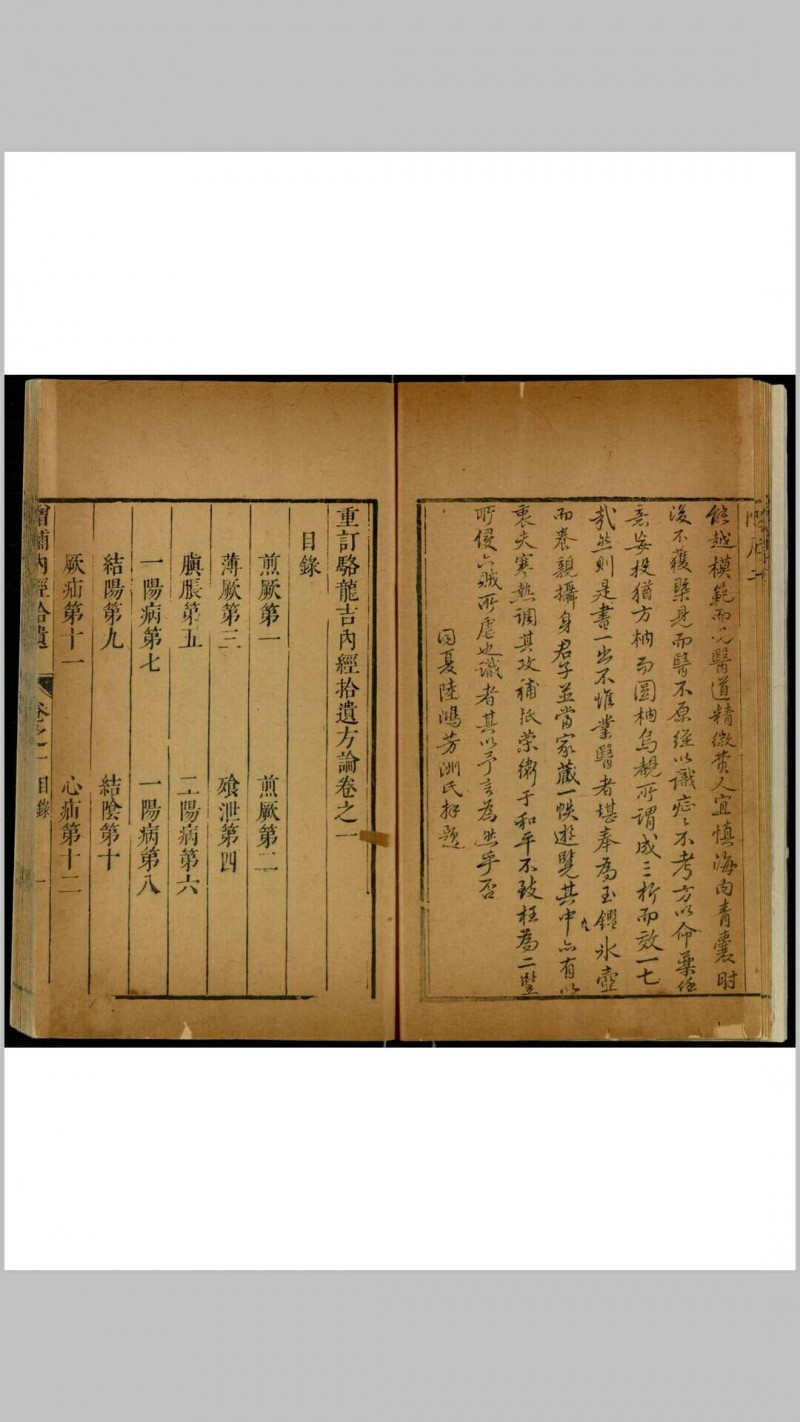 能越模範而況醫道精微費人宜慎海內青囊時
後不獲槩見而醫不原經以識症々不考方以命藥任
妄投猶方枘而圓枘烏覩所謂成三折而效一七
哉然則是書一出不惟業醫者堪奉為玉鑑冰壺
而養親攝身君子並當家藏一帙遊覽其中亦有以
衷夫寒熱調其攻補底榮衛于和平不致枉為二豎
所侵六賊所虐也識者其以予言為然乎否
因夏陸鴻芳洲氏拜題
重訂駱龍吉內經拾遺方論卷之一
目錄
煎厥第一 煎厥第二
薄厥第三 飱泄第四
䐜脹第五 二陽病第六
一陽病第七 一陽病第八
結陽第九 結陰第十
厥疝第十一 心疝第十二
增補內經拾遺 卷之一 目錄 一